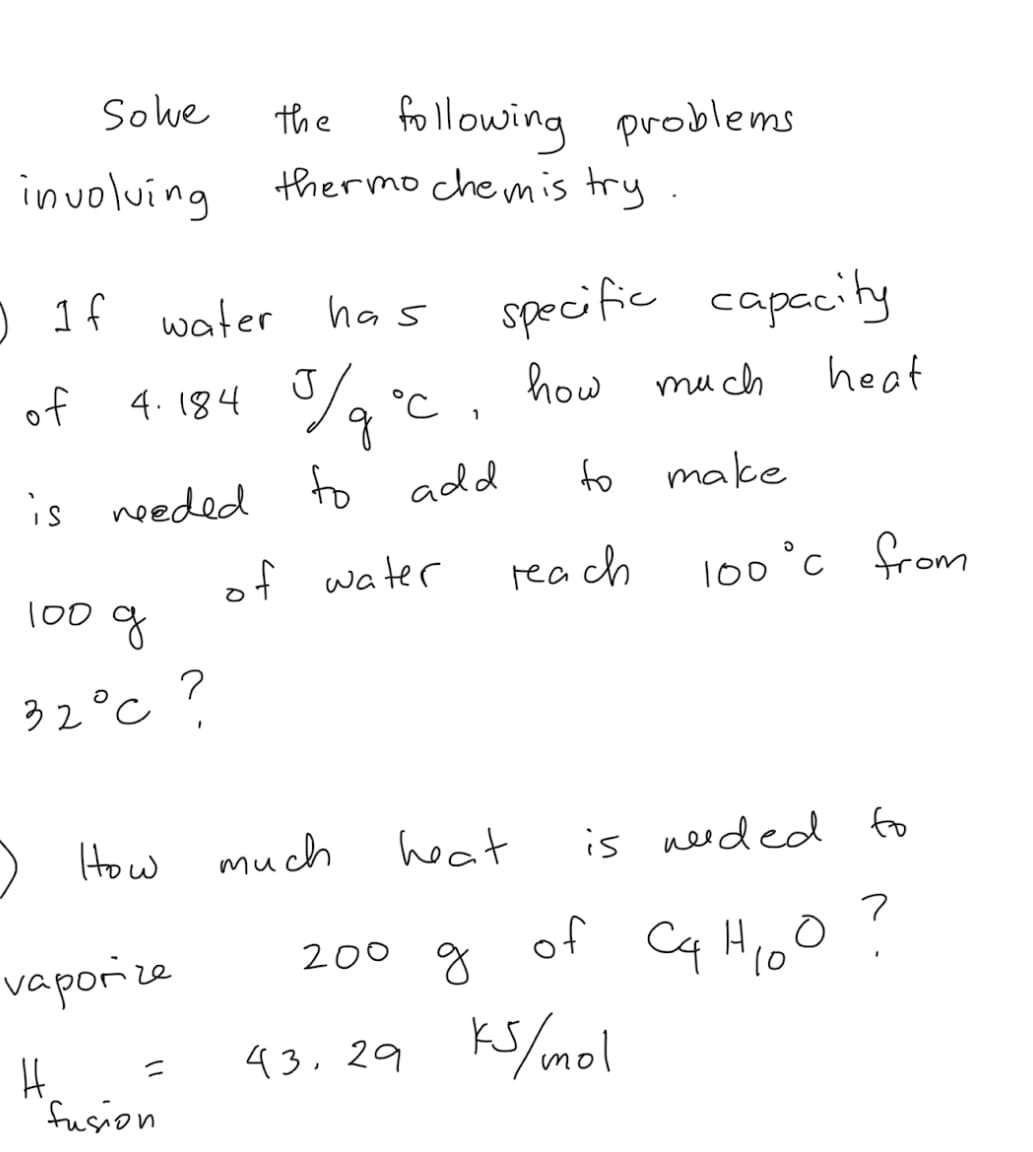 Solve the following problems
involving thermochemistry.
) If water has specific capacity
of 4.184 J/g °C, how much heat
is needed to add to make
100 g of water reach 100°C from
32°C ?
) How much heat is needed to
vaporize 200 g of C4H10O ?
H fusion = 43.29 KJ/mol